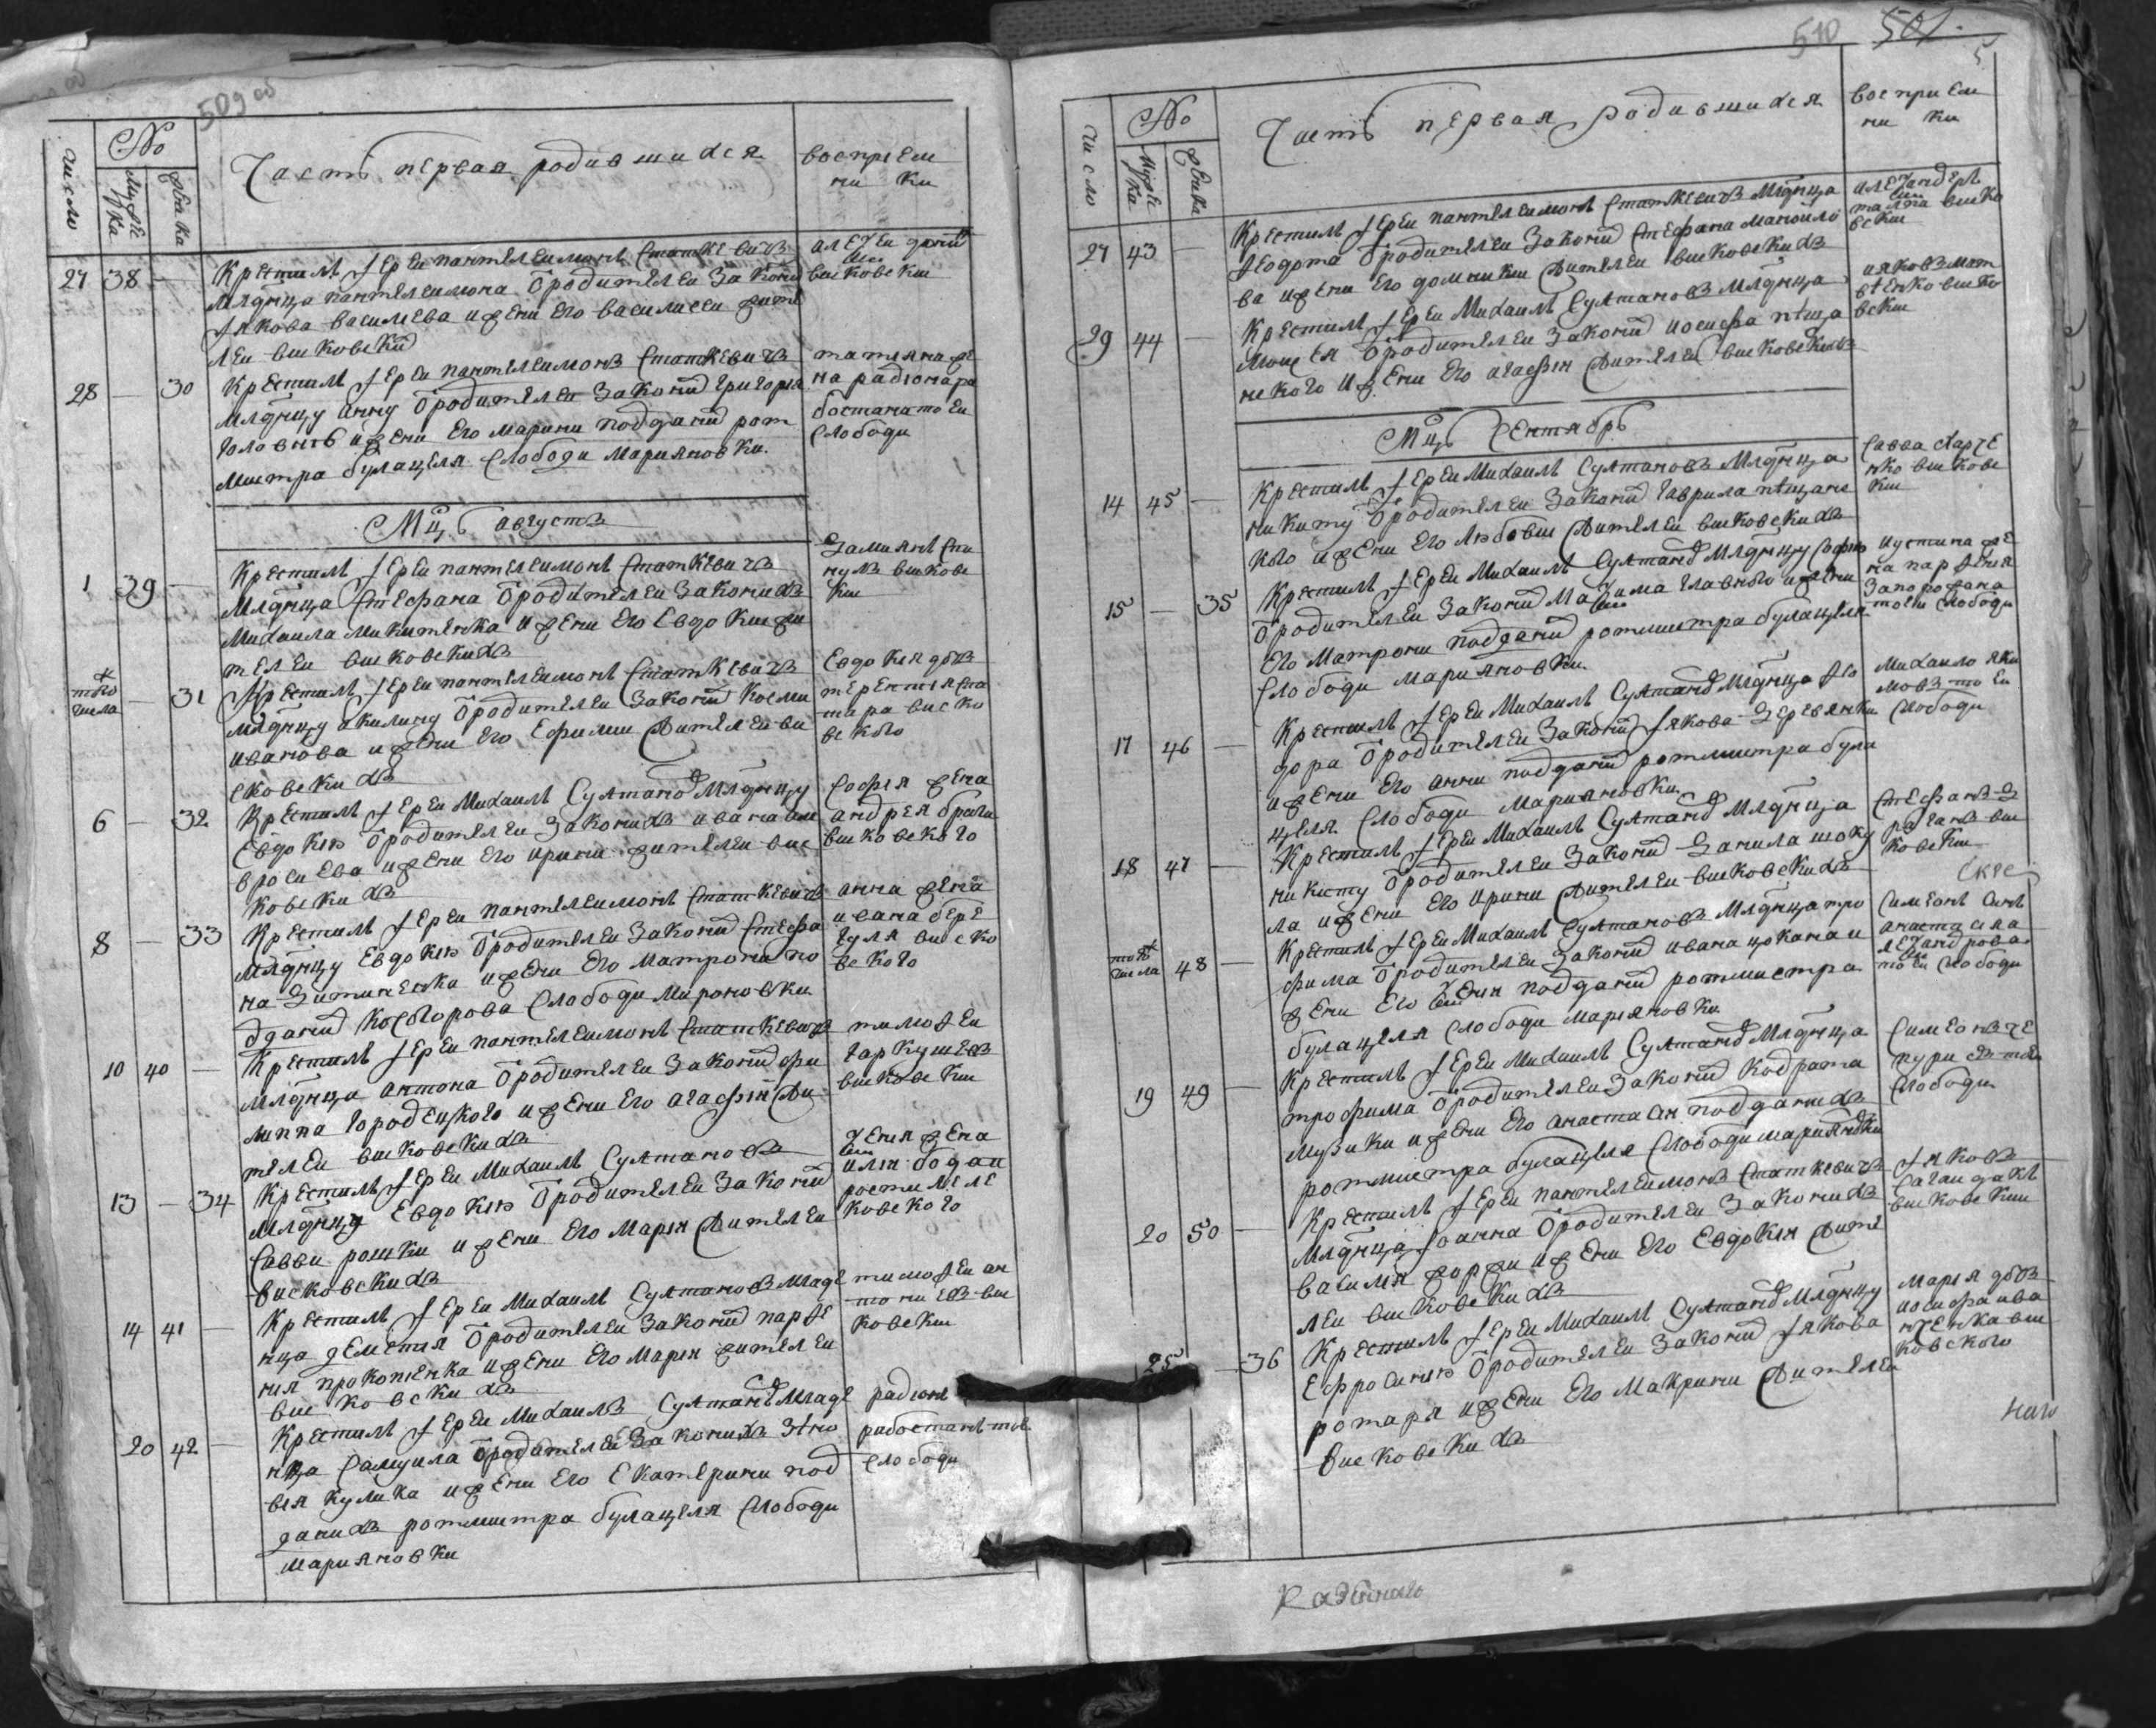 509 об
№
Число
Мужеска
Женска
Часть первая родившихся
восприем
ни ки
27 38 —
Крестилъ Іереи пантелеимонъ Статкевичъ
младенца пантелеимона От родителеи законнихъ
Іякова василева и жени его василиси жите
леи висковскихъ
алеѯеи
висковски
28 — 30
Крестилъ Іереи пантелеимонъ Статкевичъ
младенцу анну От родителеи законнихъ григорія
и жени его марини подданихъ рот
мистра булацеля Слободи Мариановки.
татіана же
на радіона ра
бостана тоеи
Слободи
Мцъ августъ
1 39 —
Крестилъ Іереи пантелеимонъ Статкевичъ
младенца Стефана От родителеи законнихъ
Михаила Микитенка и жени его Евдокии жи
телеи висковскихъ
Дамианъ Спи
нулъ висков
ски
того
числа — 31
Крестилъ Іереи пантелеимонъ Статкевичъ
младенцу акилину От родителеи законнихъ косми
иванова и жени его Ефимии жителеи ви
сковскихъ
Евдокия дочь
терентия
виско
вского
6 — 32
Крестилъ Іереи Михаилъ Султановъ младенцу
Евдокию От родителеи законнихъ ивана ам
вросиева и жени его ирини жителеи вис
ковскихъ
Софія жена
андрея
висковского
8 — 33
Крестилъ Іереи пантелеимонъ Статкевичъ
младенцу Евдокию От родителеи законнихъ Стефа
на и жени его Матрони по
дданихъ Слободи Мироновки
анна жена
ивана бере
гуля виско
вского
10 40 —
Крестилъ Іереи пантелеимонъ Статкевичъ
младенца антона От родителеи законнихъ фи
липпа городецкого и жени его агафіи жи
телеи висковскихъ
тимофеи
гаркушевъ
висковски
13 — 34
Крестилъ Іереи Михаилъ Султановъ
младенцу Евдокию От родителеи законнихъ
Савви рошки и жени его Маріи жителеи
висковскихъ
ѯения жена
иліи
ковского
14 41 —
Крестилъ Іереи Михаилъ Султановъ младе
нца дементія От родителеи законнихъ парфе
нія прокопенка и жени его Маріи жителеи
висковскихъ
тимофеи ан
тониевъ вис
ковски
20 42 —
Крестилъ Іереи Михаилъ Султановъ младе
нца Самуила От родителеи законнихъ
кулика и жени его Екатерини под
данихъ ротмистра булацеля Слободи
Мариановки
радионъ
рабостанъ тоеи
Слободи
510 501.
5
№
Число
Мужеска
Женска
Часть первая родившихся
восприем
ни ки
27 43 —
Крестилъ Іереи пантелеимонъ Статкевичъ младенца
Феодота От родителеи законнихъ Стефана маноило
ва и жени его домники жителеи висковскихъ
алеѯандеръ
виско
вски
29 44 —
Крестилъ Іереи Михаилъ Султановъ младенца
Моисея От родителеи законнихъ иосифа пѣща
нского и жени его агафіи жителеи висковскихъ
иаковъ мат
вѣенко виско
вски
Мцъ Сентябръ
14 45 —
Крестилъ Іереи Михаилъ Султановъ младенца
никиту От родителеи законнихъ гаврила пѣщанс
кого и жени его Любови жителеи висковскихъ
Савва Харче
нко висковс
ки
15 — 35
Крестилъ Іереи Михаилъ Султановъ младенцу Софію
От родителеи законнихъ Маѯима главнюго и жени
его Матрони подданихъ ротмистра булацеля
Слободи мариановки
иустина же
на парфения
запорожана
тоеи Слободи
17 46 —
Крестилъ Іереи Михаилъ Султановъ младенца Фео
дора От родителеи законнихъ Іякова деревянки
и жени его анни подданихъ ротмистра була
целя Слободи мариановки
Михаило яки
мовъ тоеи
Слободи
18 47 —
Крестилъ Іереи Михаилъ Султановъ младенца
никиту От родителеи законнихъ данила шоку
ла и жени его ирини жителеи висковскихъ
Стефанъ
вис
ковски
того
числа 48 —
Крестилъ Іереи Михаилъ Султановъ младенца тро
фима От родителеи законнихъ ивана цокана и
жени его ѯении подданихъ ротмистра
булацеля Слободи мариановки
Симеонъ Синъ
анастасиа
леѯандрова
тоеи Слободи
19 49 —
Крестилъ Іереи Михаилъ Султановъ младенца
трофима От родителеи законнихъ кодрата
музики и жени его анастасіи подданихъ
ротмистра булацеля Слободи мариановки
Симеонъ че
Слободи
20 50 —
Крестилъ Іереи пантелеимонъ Статкевичъ
младенца Іоанна От родителеи законнихъ
василя жоржи и жени его Евдокіи жите
леи висковскихъ
Іяковъ
Сагаидакъ
висковски
25 — 36
Крестилъ Іереи Михаилъ Султановъ младенцу
Ефросинію От родителеи законнихъ Іякова
ротаря и жени его Макрини жителеи
висковскихъ
Марія дочь
иосифа ива
нченка вис
ковского